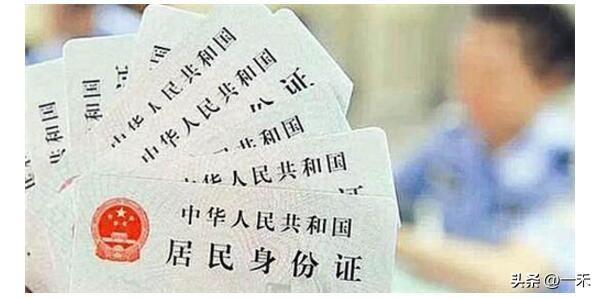 和国
中华人民共和国
中华人民共和国
份证
中华人民共和国
证
中华人民共和国
居民身份证
头条 @一禾